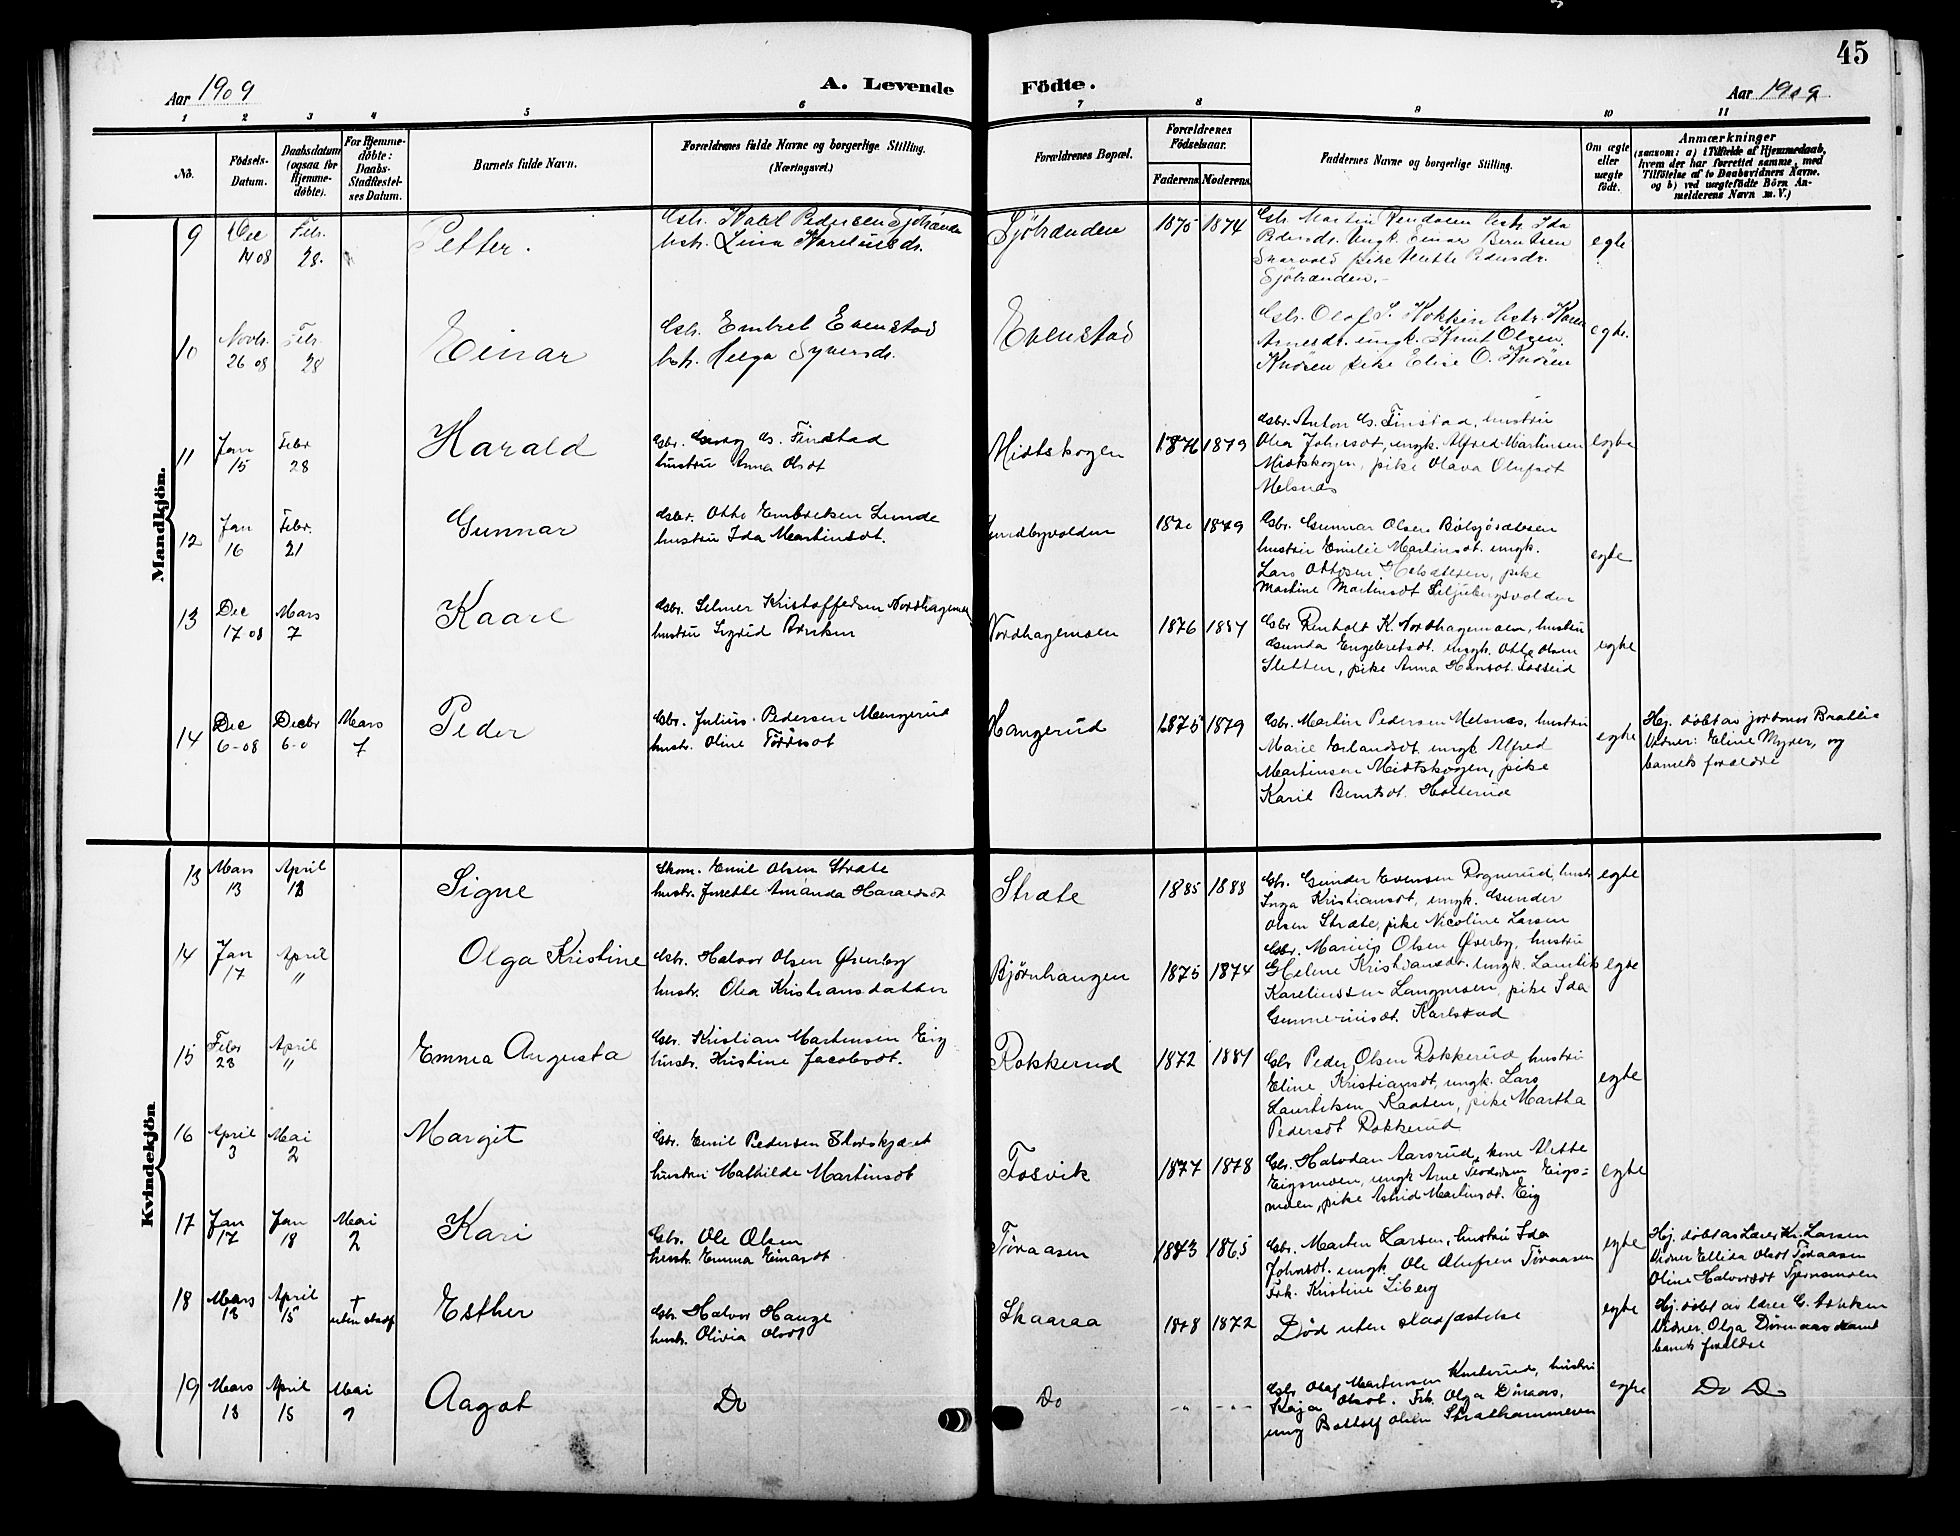 45
Aar 1909
A. Levende Födte.
Aar 1909
1 2 3 4 5 6 7 8 9 10 11
No.
Födsels-Datum.
Daabsdatum (ogsaa for Hjemme-döbte).
For Hjemme-döbte: Daabs-Stadfæstel-ses Datum.
Barnets fulde Navn.
Forældrenes fulde Navne og borgerlige Stilling. (Næringsvei.)
Forældrenes Bopæl.
Forældrenes Födselsaar.
Faderens. Moderens.
Faddernes Navne og borgerlige Stilling.
Om ægte eller uægte födt.
Anmærkninger
(saasom: a) i Tilfælde af Hjemmedaab, hvem der har forrettet samme, med Tilföielse af to Daabsvidners Navne. og b) ved uægtefödte Börn An-melderens Navn m. V.)
Mandkjön.
9 Dec 14 08 Febr. 28. Petter.
Gbr. Karl Pedersen Sjöbranden
hstr. Lina Kareliusdr.
Sjöbranden 1875 1874
Gbr. Martin hstr. Ida
Pedersdr. Ungk. Einar Berntsen
pike Mette Pedersdr.
Sjöbranden.
egte
10 Novbr. 26 08 Febr. 28 Einar
Gbr. Embret Evenstad
hstr. Helga Syversdr.
Evenstad
Gbr. Olaf S. Kokkin hstr. Karen
Arnesdr. ungk. Knut Olsen
Knosen pike Elise O. Knosen
egte.
11 Jan 15 Febr 28 Harald
Gbr. Georg G. Finstad
hustru Anna Olsdt
Midtskogen 1876 1879
Gbr. Anton G. Finstad, hustru
Olea Johnsdt, ungk. Alfred Martinsen
Midtskogen, pike Olava Olufsdt
Melsnes
egte
12 Jan 16 Febr. 21 Gunnar
Gbr. Otto Embretsen Lunde
hustru Ida Martinsdt.
Lundbyvolden 1879
Gbr. Gunnar Olsen
hustru Emilie Martinsdt. ungk.
Lars Ottosen pike
Martine Martinsdt Liljebergsvolden
egte
13 Dec 17-08 Mars 7 Kaare
Gbr. Selmer Kristoffersen Nordhagemoen
hustru Sigrid
Nordhagemoen 1876
Gbr Renholt K. Nordhagemoen, hustru
Gunda Engebretsdt. ungk. Otto Olsen
Sletten, pike Anna Hansdt.
egte
14 Dec 6-08 Decbr 6-0 Mars 7 Peder
Gbr. Julius Pedersen Mengerud
hustr. Oline
Hangerud 1875 1879
Gbr. Martin Pedersen Melsnes, hustru
Marie Erlandsdt. ungk Alfred
Martinsen Midtskogen, pike
Karil Berntsdt. Holterud
egte
Hj. döbt av jordmor Bratlie
Vidner: Eline Myrer, og
barnets forældre
Kvindekjön
13 Mars 13 April 18 Signe
Skom. Emil Olsen Stræte
hustr. Josette Amanda Haraldsdt
Stræte 1885 1888
Gbr. Gunder Evensen Rognerud, hustr
Inga Kristiansdt, ungk. Gunder
Olsen Stræte, pike Nicoline Larsen
egte
14 Jan 17 April " Olga Kristine
Gbr. Halvor Olsen Øverby
hustr. Olea Kristiansdatter
Bjørnhaugen 1875 1874
Gbr. Marius Olsen Øverby, hustru
Helene Kristiansdr. ungk. Laurits
Kareliussen Langmoen, pike Ida
Gunneriusdt. Karlstad
egte
15 Febr 23 April " Emma Augusta
Gbr. Kristian Martinsen Eig
hustr. Kristine Jacobsdt.
Rokkerud 1872 1881
Gbr Peder Olsen Rokkerud hustru
Eline Kristiansdt, ungk. Lars
Lauritsen Kaaten, pike Martha
Pedersdt Rokkerud
egte
16 April 3 Mai 2 Margit
Gbr. Emil Pedersen Skorskjæret
hustru Mathilde Martinsdt
Fosvik 1877 1878
Gbr. Halvdan Aarsrud, kone Mette
Eigsmoen, ungk Arne Eigs=
moen, pike Astrid Martinsdt. Eig
egte
17 Jan 17 Jan 18 Mai 2 Kari
Gbr. Ole Olsen
hustr. Emma Einarsdt
Toraasen 1873 1865
Gbr. Marten Larsen, hustru Ida
Johnsdt. ungk Ole Olufsen Toraasen
Frk. Kristine Liberg
egte
Hj. döbt av Lærer Kr. Larsen
Vidner Ellida Olsdt Toraasen
Oline Halvorsdt Tjernsmoen
18 Mars 13 April 15 † uten stadf Esther
Gbr. Halvor Hauge
hustr. Olivia Olsdt
Skaaraa 1878 1872
Død uten stadfæstelse
egte
Hj. döbt av lærer G.
Vidner, Olga samt
barnets forældre
19 Mars 13 April 15 Mai 9 Aagot
Do
Do -"- -"-
Gbr. Olaf Martinsen hustru
Kaja Olsdt. Frk. Olga
ung Bottolf Olsen Strathammeren
egte
Do Do